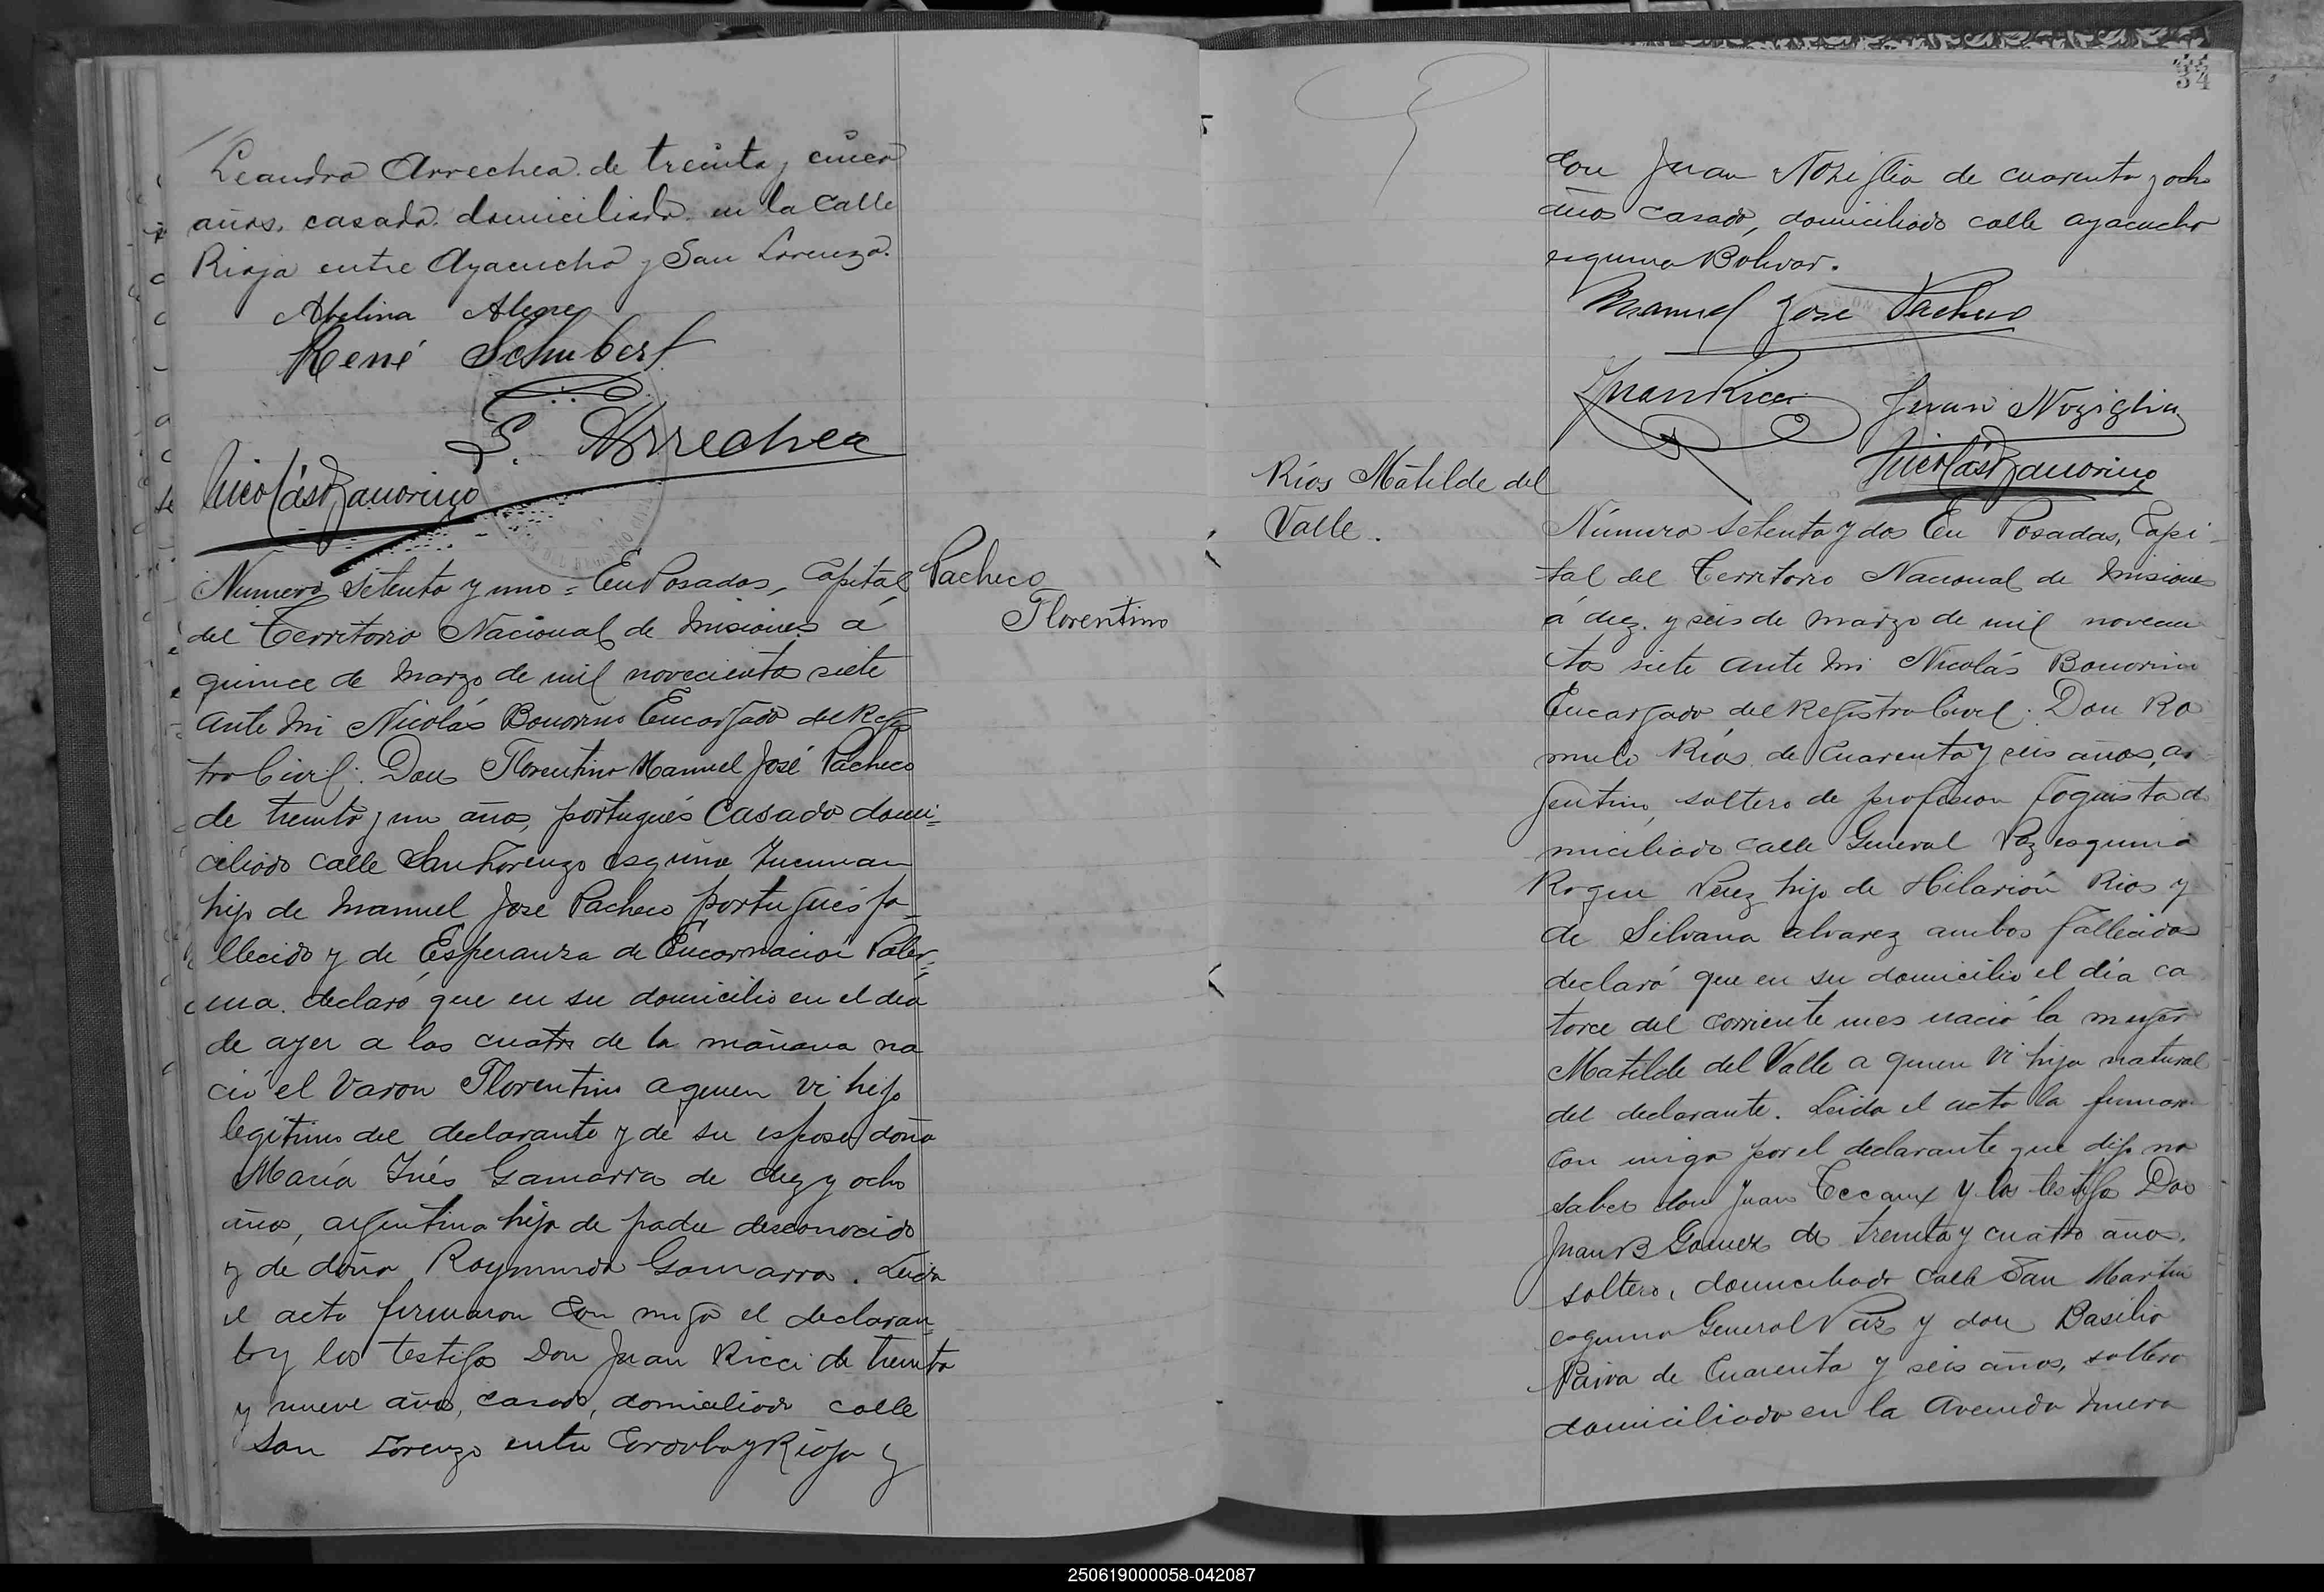 Leandro Arrechea de treinta y cinco
años, casado domiciliado en la Calle
Rioja entre Ayacucho y San Lorenzo.
Abelina Alegre
René Schubert
L. Arrechea
Nicolás Bonorino
Numero setenta y uno = En Posadas, Capital
del Territorio Nacional de Misiones á
quince de Marzo de mil novecientos siete
ante mi Nicolás Bonorino Encargado del Regis
tro Civil: Don Florentino Manuel José Pacheco
de treinta y un años, portugués Casado domi=
ciliado calle San Lorenzo esquina Tucuman
hijo de Manuel José Pacheco portugués fa-
llecido y de Esperanza de Encarnación
declaró que en su domicilio en el dia
de ayer a las cuatro de la mañana na
ció el varon Florentino a quien vi hijo
legitimo del declarante y de su esposa doña
María Inés Gamarra de diez y ocho
años, argentina hija de padre desconocido
y de doña Raymunda Gamarra. Leida
el acta firmaron con migo el declaran=
te y los testigos Don Juan Ricci de treinta
y nueve años, casado, domiciliado calle
San Lorenzo entre Cordoba y Rioja y
Pacheco
Florentino
34
Don Juan Noziglia de cuarenta y ocho
años casado, domiciliado calle ayacucho
esquina Bolivar.
Manuel José Pacheco
Juan Ricci
Juan Noziglia
Nicolás Bonorino
Ríos Matilde del
Valle.
Número setenta y dos En Posadas, Capi-
tal del Territorio Nacional de Misiones
á diez y seis de marzo de mil novecien
tos siete ante mi Nicolás Bonorino
Encargado del Registro Civil: Don Ro
mulo Ríos de Cuarenta y seis años, ar-
gentino, soltero de profesion foguista do
miciliado calle General Paz esquina
Roque Perez hijo de Hilarión Rios y
de Silvana alvarez ambos fallecidos
declaró que en su domicilio el día ca
torce del corriente mes nació la mujer
Matilde del Valle a quien vi hija natural
del declarante. Leida el acta la firmaron
con migo por el declarante que dijo no
saber don Juan y los testigos Don
Juan B Gomez de treinta y cuatro años,
soltero, domiciliado calle San Martin
esquina General Paz y don Basilio
Paiva de Cuarenta y seis años, soltero
domiciliado en la Avenida
250619000058-042087